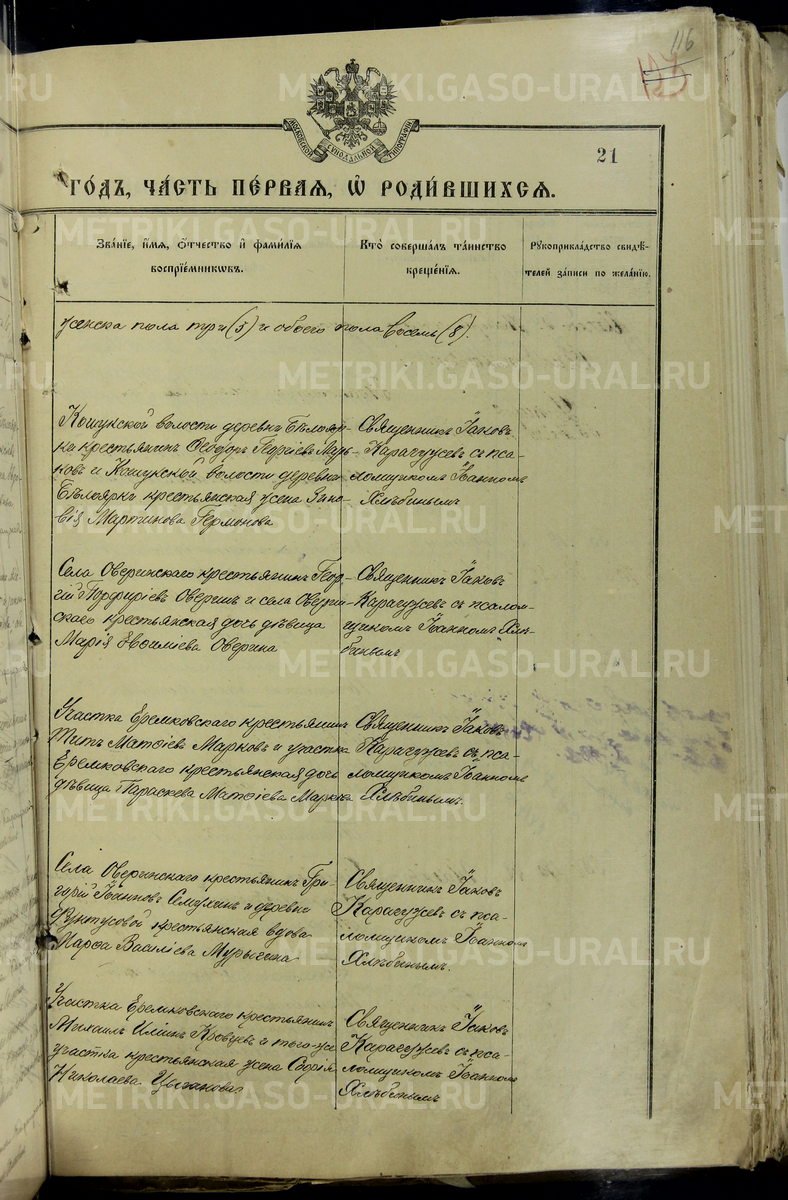 116
МОСКОВСКОЙ СѴНОДАЛЬНОЙ ТИПОГРАФІИ
21
ГО́ДЪ, ЧА́СТЬ ПЕ́РВАЯ, Ѽ РОДИ́ВШИХСЯ.
Зва́нїе, и҆́мя, ѻ҆́тчество и҆ фами́лїя
воспрїе́мникѡвъ.
Кто̀ соверша́лъ та́инство
креще́нїя.
Рꙋкоприкла́дство свидѣ́-
телей за́писи по жела́нїю.
женска пола три (3) и обоего пола восемь (8).
Кошукской волости деревни Бѣлояр-
ки крестьянинъ Ѳеодоръ Георгіевъ Марь-
ковъ и Кошукской волости деревни
Бѣлоярки крестьянская жена Зино-
вія Мартинова Гермонова
Священникъ Іаковъ
Карагужевъ съ пса-
ломщикомъ Іоанномъ
Хлѣбинымъ
Села Оверинскаго крестьянинъ Геор-
гій Порфиріевъ Оверинъ и села Оверин-
скаго крестьянская дочь дѣвица
Марія Оверина
Священникъ Іаковъ
Карагужевъ съ псалом-
щикомъ Іоанномъ Хлѣ-
бинымъ
Участка Еремковскаго крестьянинъ
Титъ Матѳіевъ Марковъ и участка
Еремковскаго крестьянская дочь
дѣвица Параскева Матѳіева Маркова
Священникъ Іаковъ
Карагужевъ съ пса-
ломщикомъ Іоанномъ
Хлѣбинымъ.
Села Оверинскаго крестьянинъ Гри-
горій Іоанновъ Семухинъ и деревни
Фунтусовой крестьянская вдова
Марѳа Василіева Мурыгина
Священникъ Іаковъ
Карагужевъ съ пса-
ломщикомъ Іоанномъ
Хлѣбинымъ.
Участка Еремковскаго крестьянинъ
Михаилъ Иліинъ Кровцевъ и того-же
участка крестьянская жена Софія
Николаева Цыганова
Священникъ Іаковъ
Карагужевъ съ пса-
ломщикомъ Іоанномъ
Хлѣбинымъ
METRIKI.GASO-URAL.RU